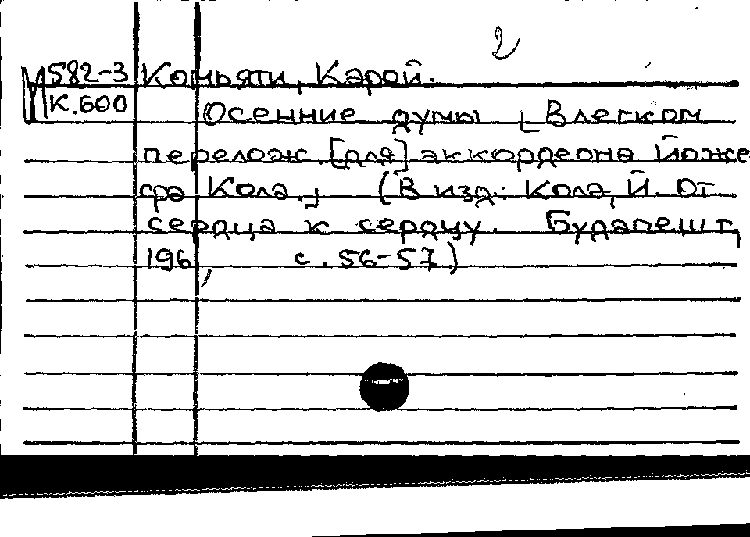 2
582-3 Комьяти, Карой.
К.600 Осенние думы [В легком
перелож. [для] аккордеона Йоже
фа Кола.] (В изд: Кола, Й. От
сердца к сердцу. Будапешт,
196 , с. 56-57)